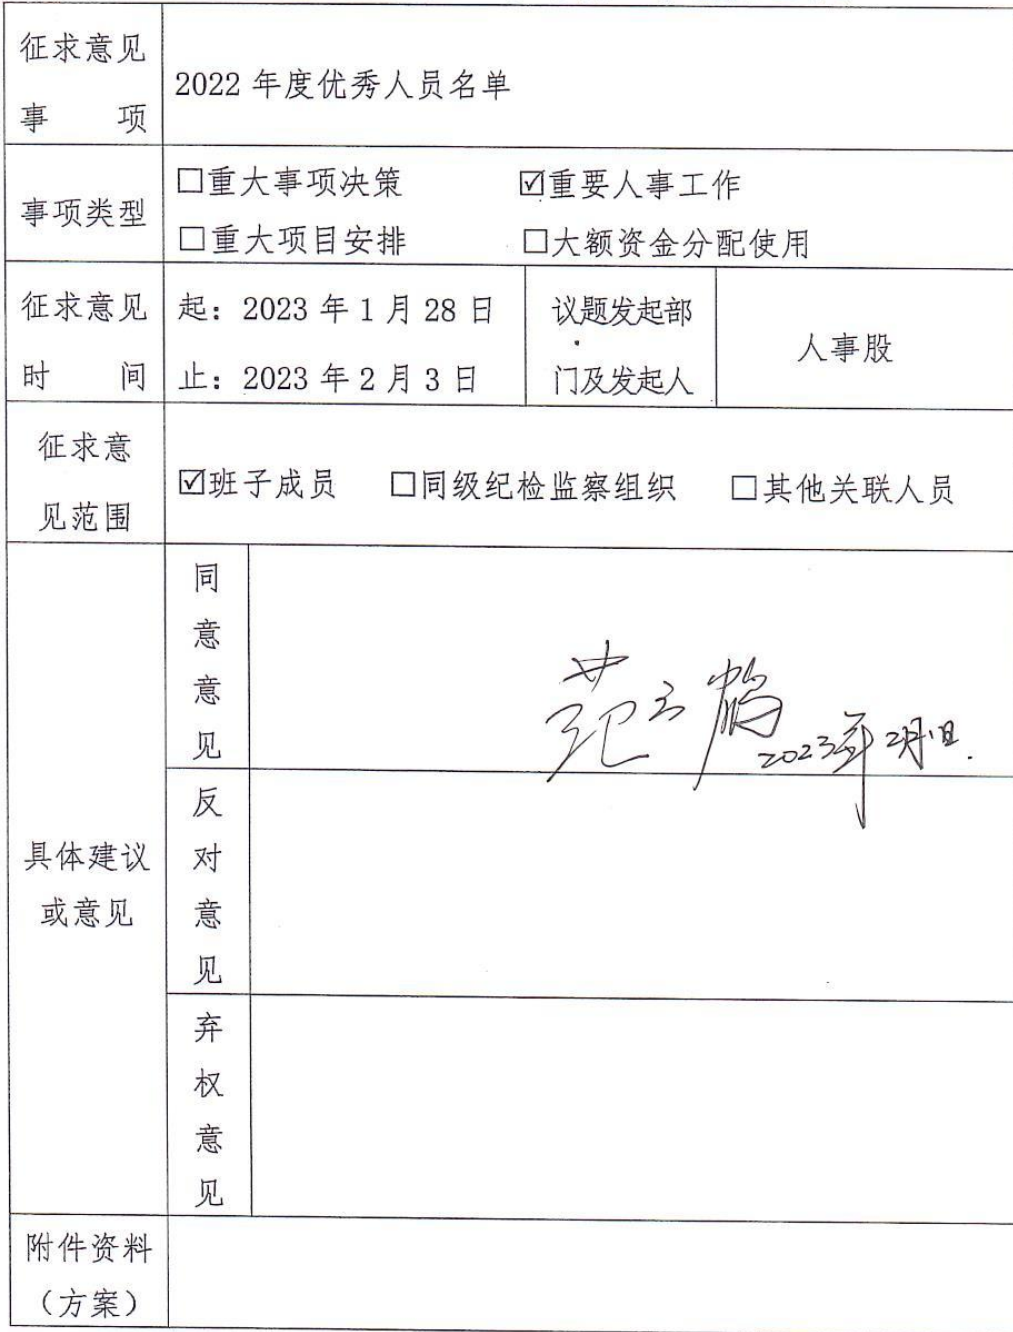 征求意见
事 项
2022 年度优秀人员名单
事项类型
□重大事项决策 ☑重要人事工作
□重大项目安排 □大额资金分配使用
征求意见
时 间
起：2023 年 1 月 28 日
止：2023 年 2 月 3 日
议题发起部
门及发起人
人事股
征求意
见范围
☑班子成员 □同级纪检监察组织 □其他关联人员
具体建议
或意见
同
意
意
见
范云鹤
2023年2月1日.
反
对
意
见
弃
权
意
见
附件资料
（方案）